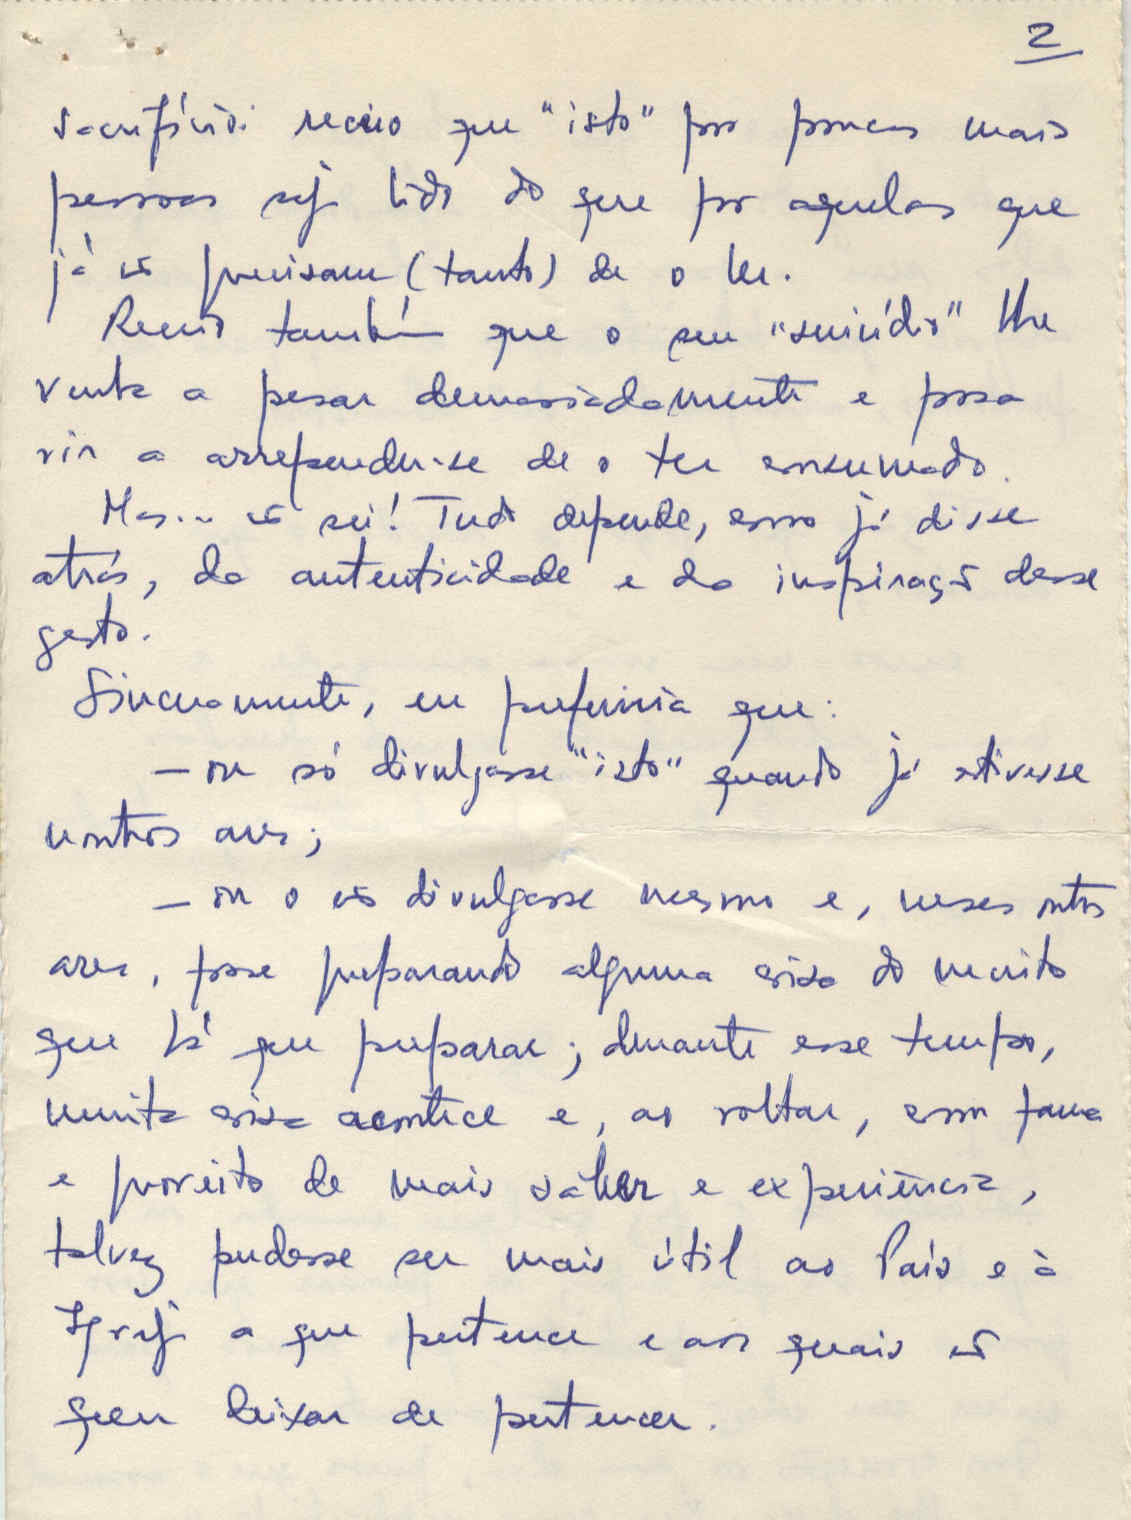 2
sacrifício: receio que "isto" por poucas mais
pessoas seja lido do que por aquelas que
já ñ precisam (tanto) de o ler.
Receio também que o seu "suicídio" lhe
venha a pesar demasiadamente e possa
vir a arrepender-se de o ter consumado.
Mas... ñ sei! Tudo depende, como já disse
atrás, da autenticidade e da inspiração desse
gesto.
Sinceramente, eu preferiria que:
— ou só divulgasse "isto" quando já estivesse
noutros ares;
— ou o ñ divulgasse mesmo e, nesses outros
ares, fosse preparando alguma coisa do muito
que há que preparar; durante esse tempo,
muita coisa acontece e, ao voltar, com fama
e proveito de mais saber e experiência,
talvez pudesse ser mais útil ao País e à
Igreja a que pertence e aos quais ñ
quer deixar de pertencer.